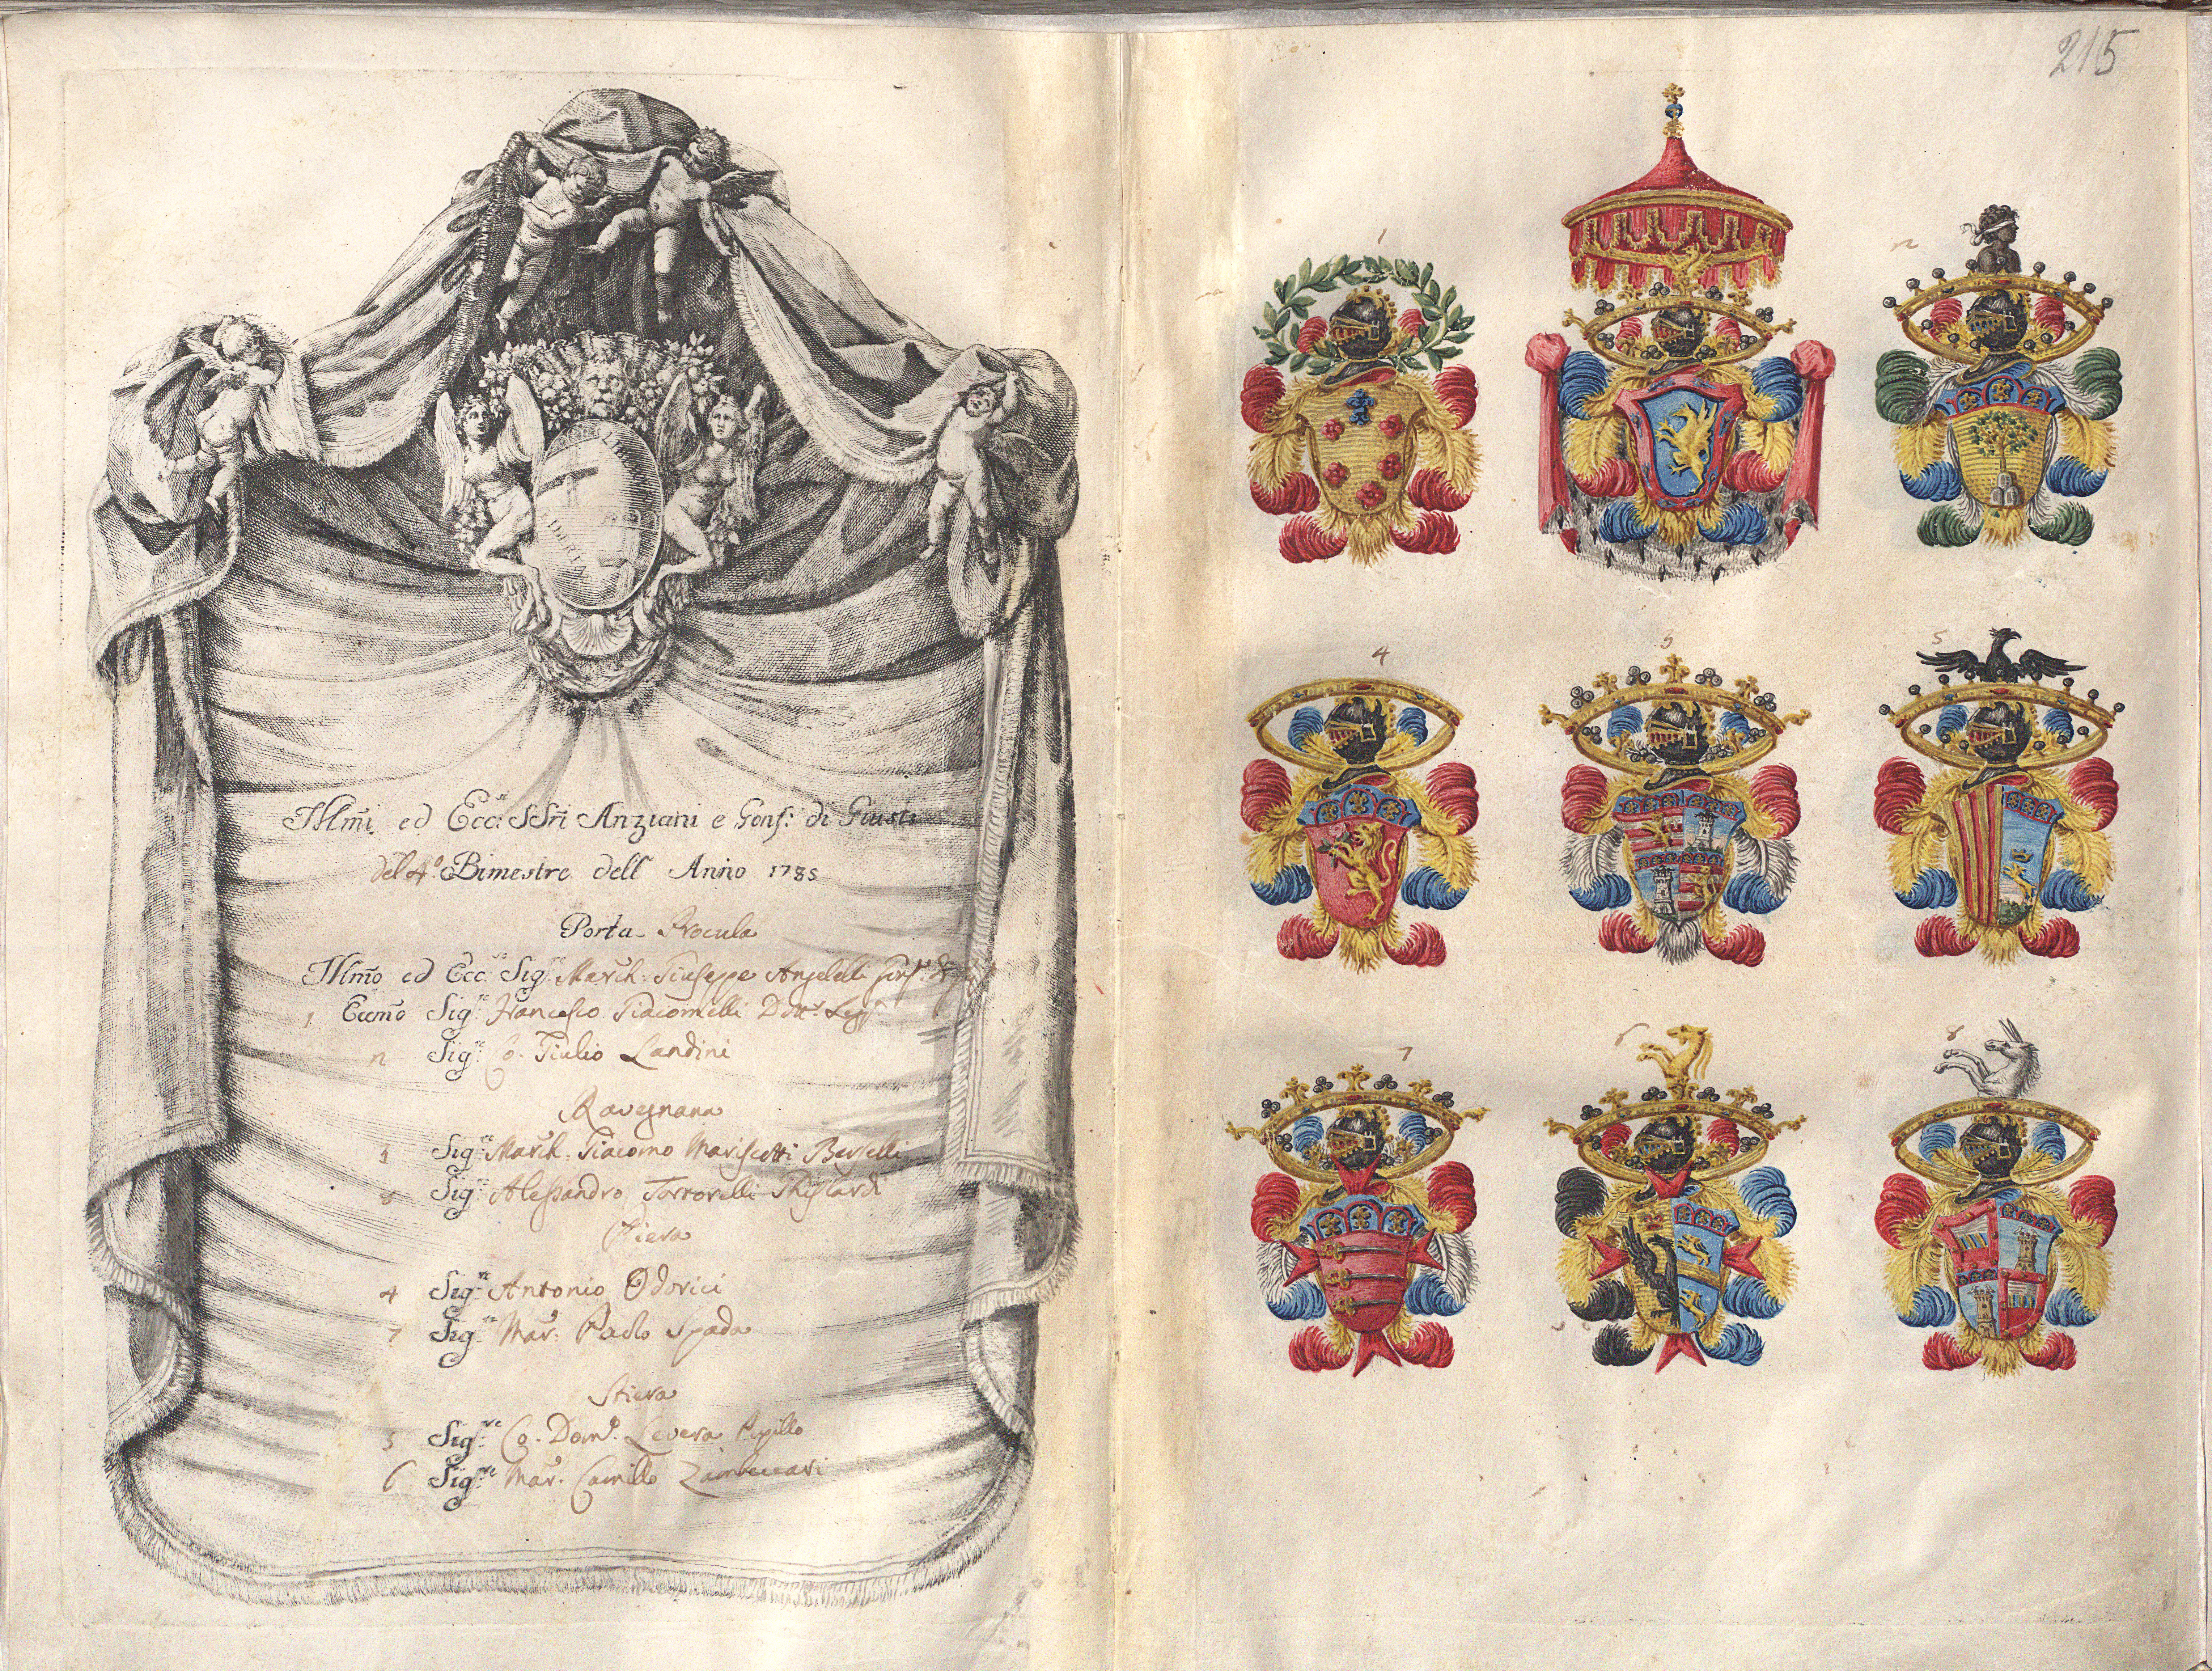 215
LIBERTAS
LIBERTAS
Illm̃i ed Ecc.si SSri Anziani e Gonf: di Giust:
del 4.o Bimestre dell Anno 1785
Porta Procula
Illm̃o ed Ecc.mo Sig.re March: Giuseppe Angelelli Gonf.re di
1 Eccm̃o Sig.re Francesco Giacomelli Dott.r Legg.
2 Sig.re Co. Giulio Landini
Ravegnana
3 Sig.re March: Giacomo Mariscotti Berselli
8 Sig.re Alessandro
Piera
4 Sig.re Antonio Odorici
7 Sig.re Mar: Paolo Spada
Stiera
5 Sig.re Co. Dom.o Levera Pupillo
6 Sig.re Mar. Camillo Zambeccari
1
2
4
3
5
7
6
8